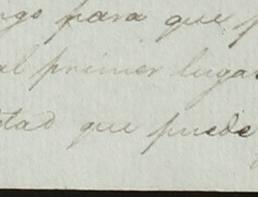 ngo para que p
al primer lugar
tad que puede